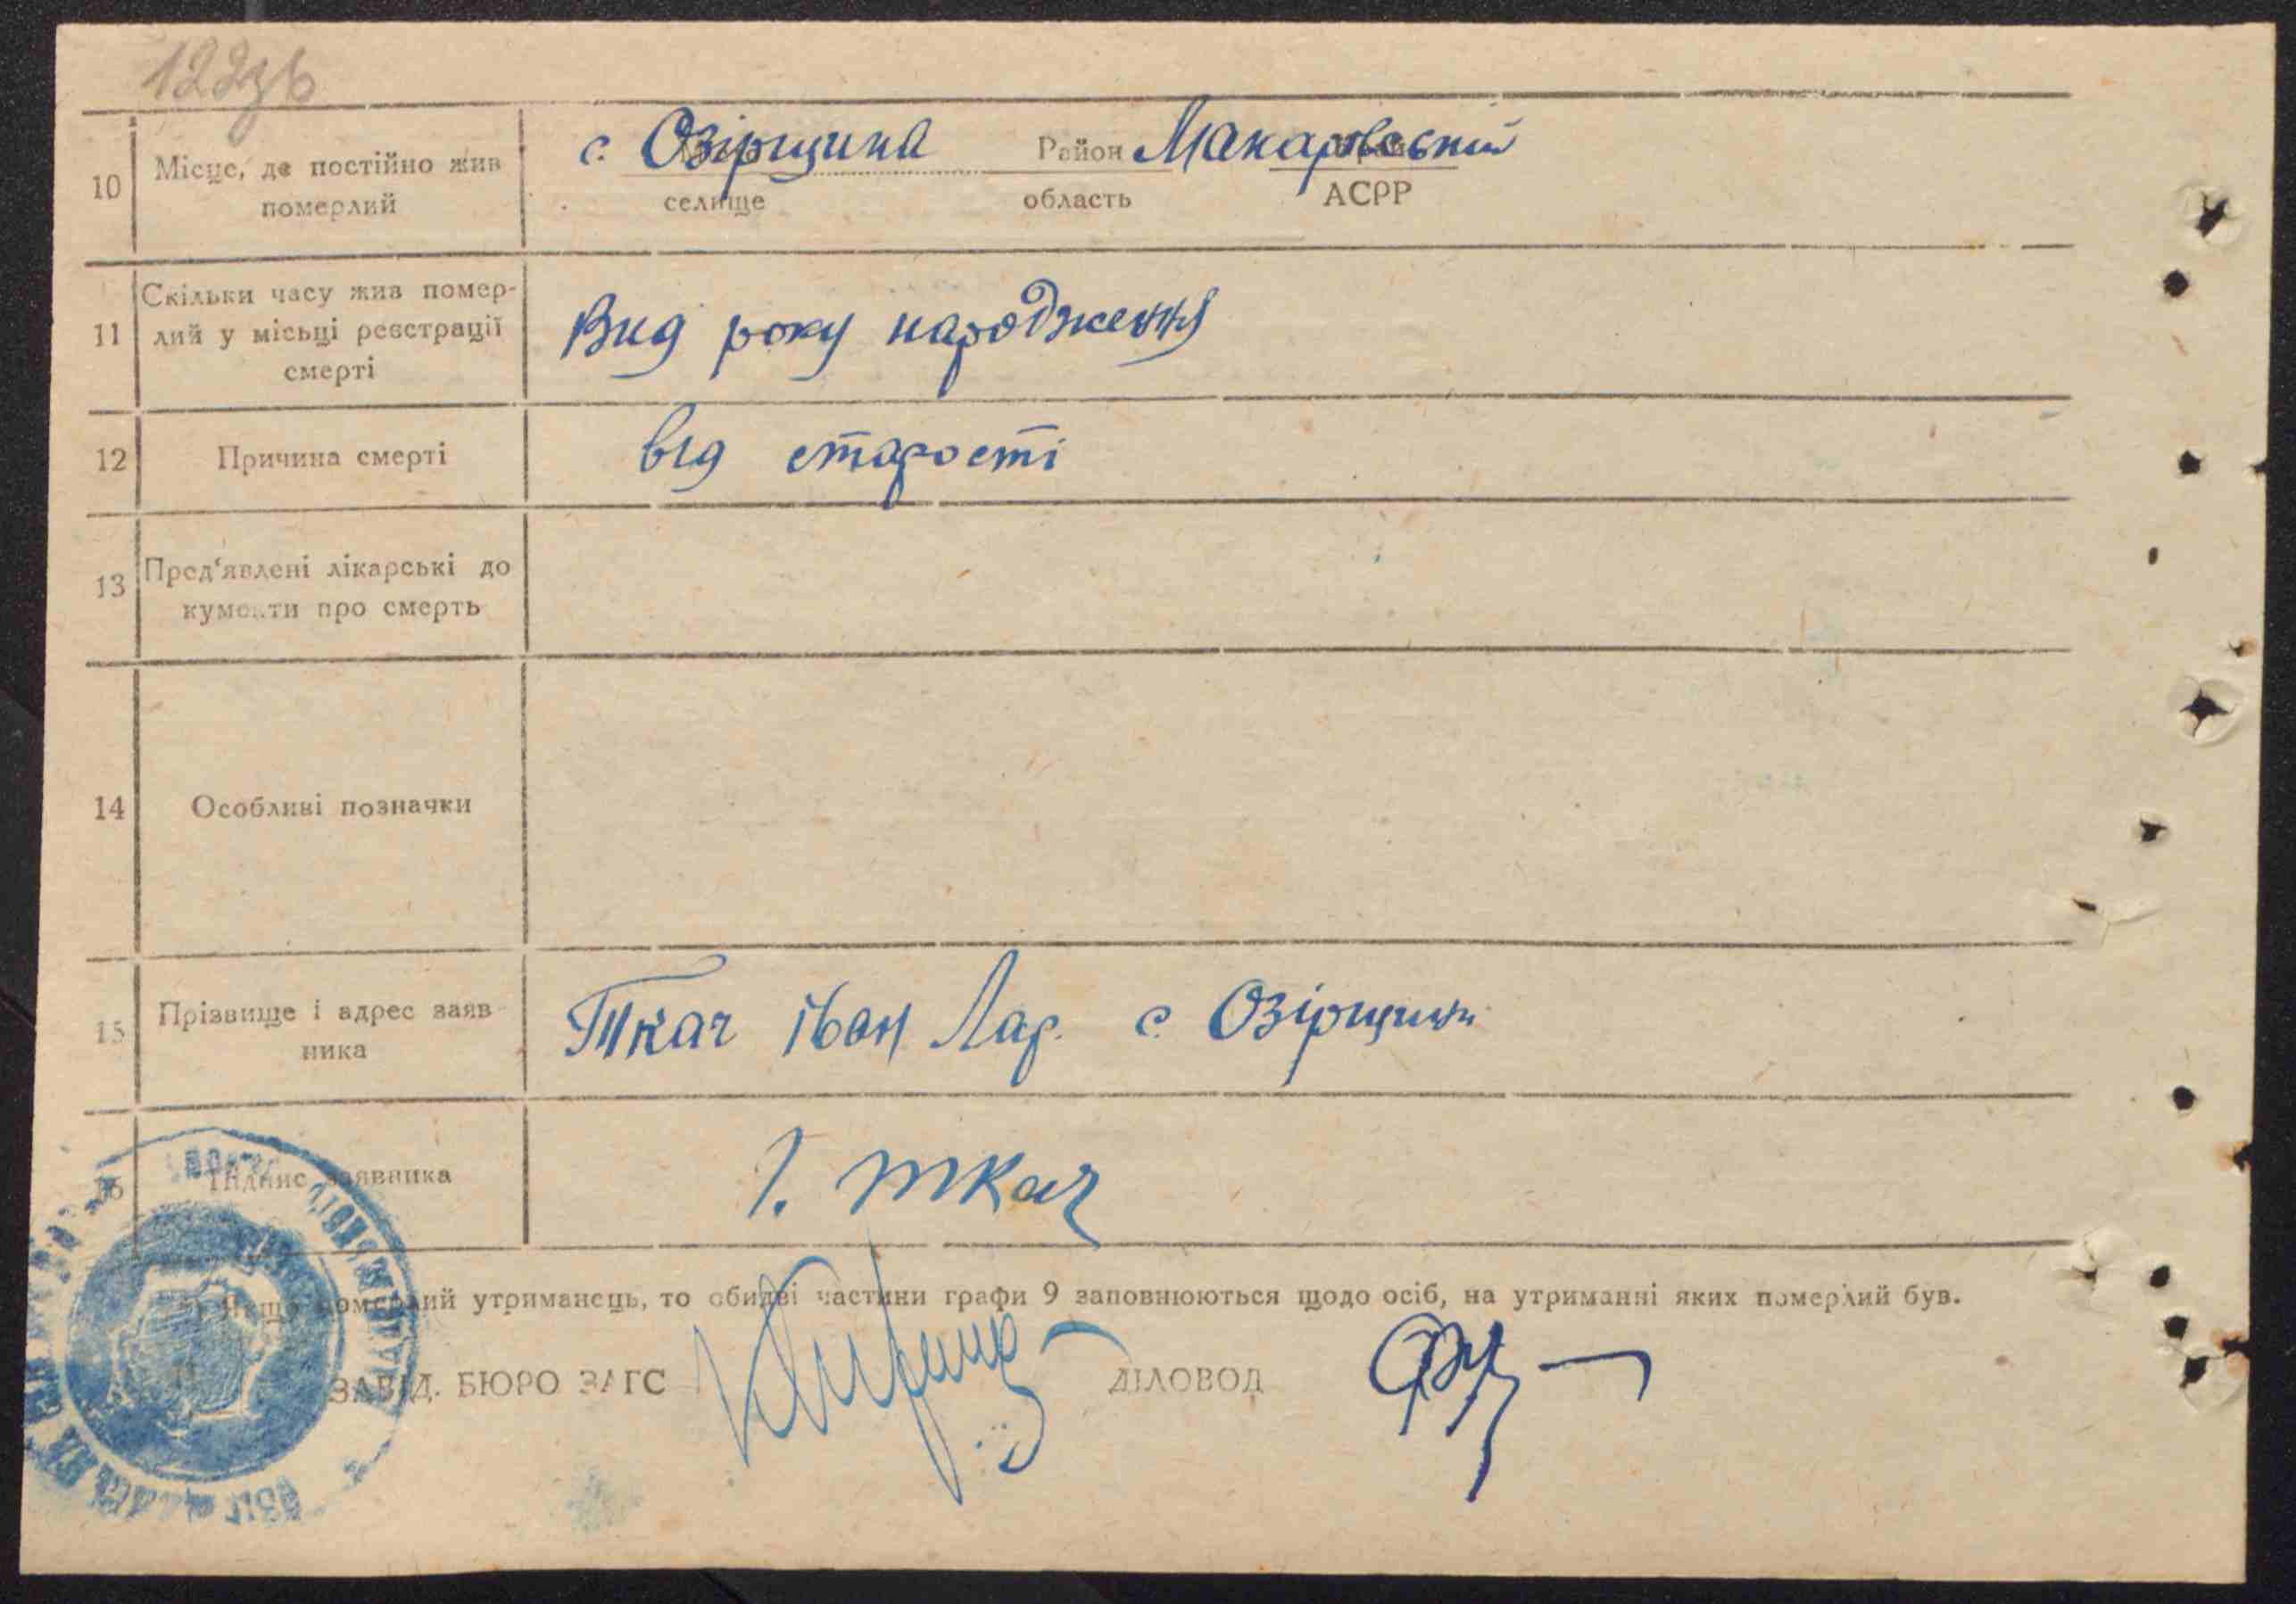 122зв
10 Місце, де постійно жив померлий
с. Озірщина Район Макарівський
селище область АСРР
11 Скільки часу жив помер-
лий у місьці реєстрації
смерті
Вид року народження
12 Причина смерті
від старості
13 Пред'явлені лікарські до
кументи про смерть
14 Особливі позначки
15 Прізвище і адрес заяв-
ника
Ткач Іван Лар. с Озірщини
16 Підпис заявника
І. Ткач
Якщо померлий утриманець, то обидві частини графи 9 заповнюються щодо осіб, на утриманні яких померлий був.
ЗАВІД. БЮРО ЗАГС ДІЛОВОД